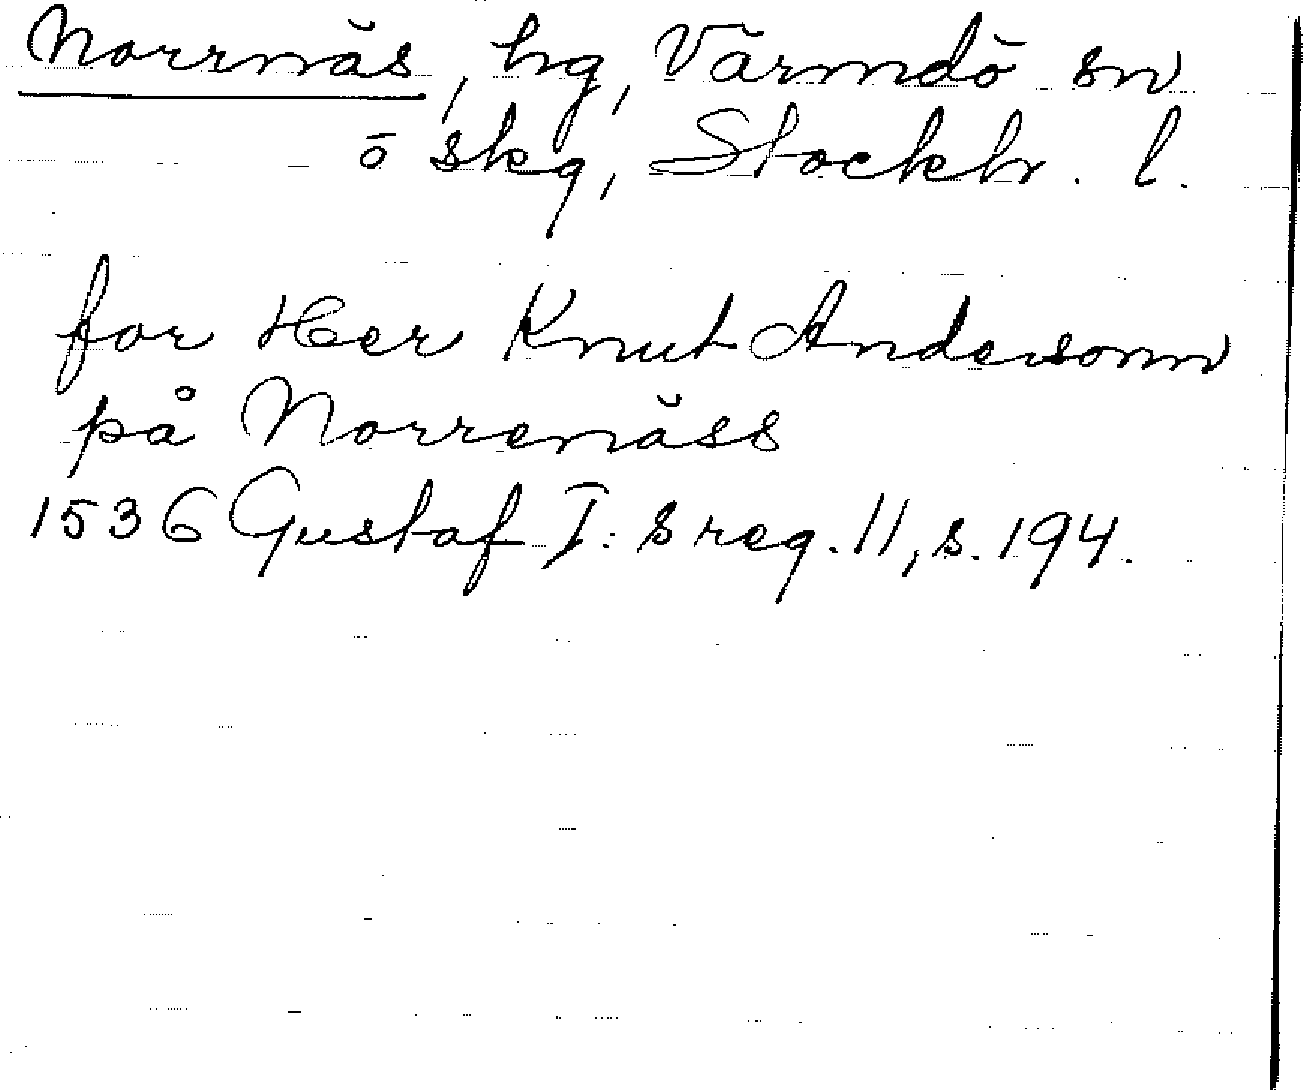 Norrnäs, hg, Värmdö sn
ö skg, Stockh. l.
for Her Knut Andersonn
på Norrenäss
1536 Gustaf I:s reg. 11, s. 194.